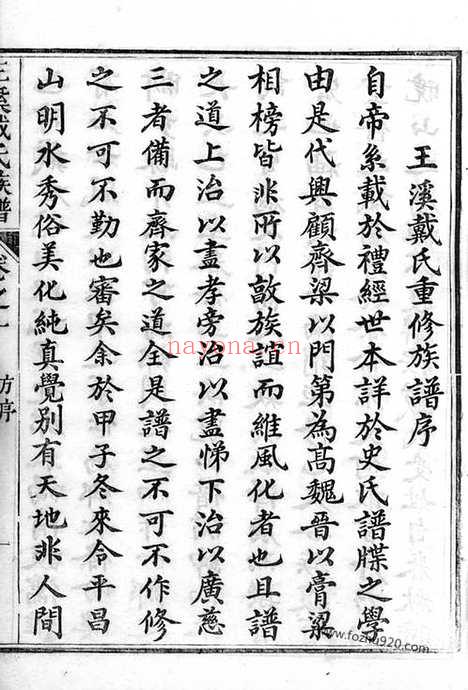 王溪戴氏重修族譜序
自帝系載於禮經世本詳於史氏譜牒之學
由是代興顧齊梁以門第為高魏晉以膏粱
相榜皆非所以敦族誼而維風化者也且譜
之道上治以盡孝旁治以盡悌下治以廣慈
三者備而齊家之道全是譜之不可不作修
之不可不勤也審矣余於甲子冬來令平昌
山明水秀俗美化純真覺別有天地非人間
王溪戴氏族譜
卷之一
方序
一
nayona.cn
www.fozhu920.com